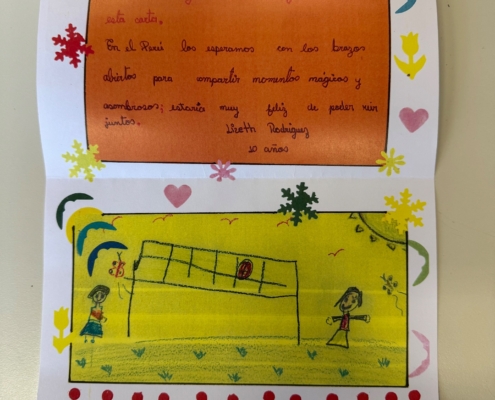 esta carta.
En el Perú los esperamos con los brazos
abiertos para compartir momentos mágicos y
asombrosos; estaría muy feliz de poder reir
juntos.
Lizeth Rodríguez
10 años